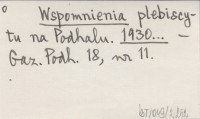 Wspomnienia plebiscy-
tu na Podhalu. 1930... —
Gaz. Podh. 18, nr 11.